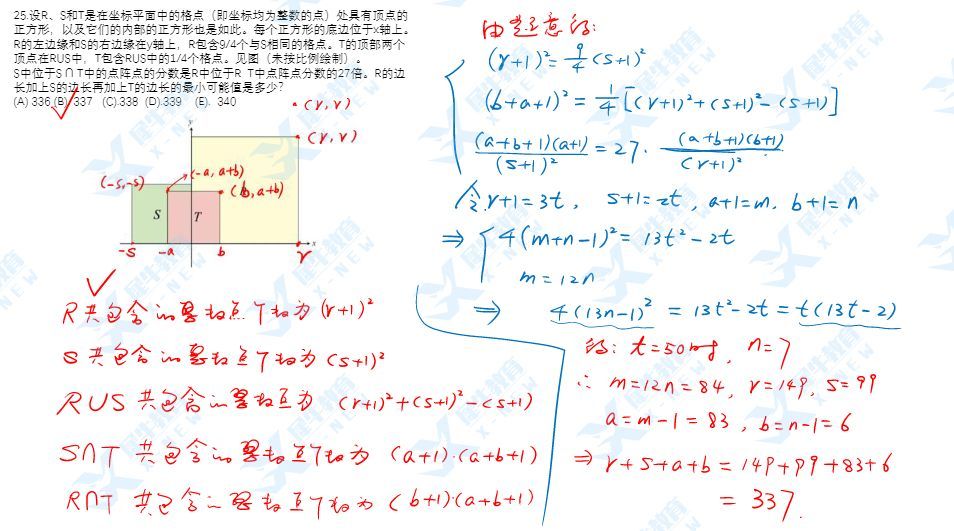 25.设R、S和T是在坐标平面中的格点（即坐标均为整数的点）处具有顶点的
正方形，以及它们的内部的正方形也是如此。每个正方形的底边位于x轴上。
R的左边缘和S的右边缘在y轴上，R包含9/4个与S相同的格点。T的顶部两个
顶点在RUS中，T包含RUS中的1/4个格点。见图（未按比例绘制）。
S中位于S∩T中的点阵点的分数是R中位于R T中点阵点分数的27倍。R的边
长加上S的边长再加上T的边长的最小可能值是多少？
(A) 336 (B) 337 (C).338 (D).339 (E). 340
(r, r)
y
(r, r)
(-s,-s)
(-a, a+b)
(b, a+b)
S
T
x
-s
-a
b
r
R共包含的整数点个数为 (r+1)²
S共包含的整数点个数为 (s+1)²
RUS 共包含的整数点为 (r+1)²+(s+1)²-(s+1)
S∩T 共包含的整数点个数为 (a+1)·(a+b+1)
R∩T 共包含的整数点个数为 (b+1)·(a+b+1)
由题意得:
(r+1)²=9/4(s+1)²
(b+a+1)²=1/4[(r+1)²+(s+1)²-(s+1)]
(a+b+1)(a+1)/(s+1)² = 27·(a+b+1)(b+1)/(r+1)²
令 r+1=3t, s+1=2t, a+1=m, b+1=n
⇒ 4(m+n-1)²=13t²-2t
m=12n
⇒ 4(13n-1)²=13t²-2t=t(13t-2)
得: t=50 时, n=7
∴ m=12n=84, r=149, s=99
a=m-1=83, b=n-1=6
⇒ r+s+a+b=149+99+83+6
=337.
犀牛教育
X-NEW